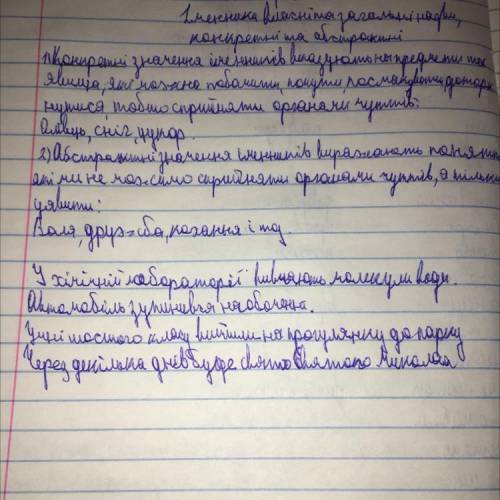 Іменники власні та загальні назви,
конкретні та абстрактні
1) Конкретні значення іменників вказують на предмети та
явища, які можна побачити, почути, посмакувати, доторк
нутися, тобто сприйняти органами чуттів:
Олівець, сніг, цукор.
2) Абстрактні значення іменників виражають поняття
які ми не можемо сприйняти органами чуттів, а тільки
уявити:
Воля, дружба, кохання і тд.
У хімічній лабораторії вивчають молекули води.
Автомобіль зупинився на обочині.
Учні шостого класу вийшли на прогулянку до парку
Через декілька днів буде свято Святого Миколая